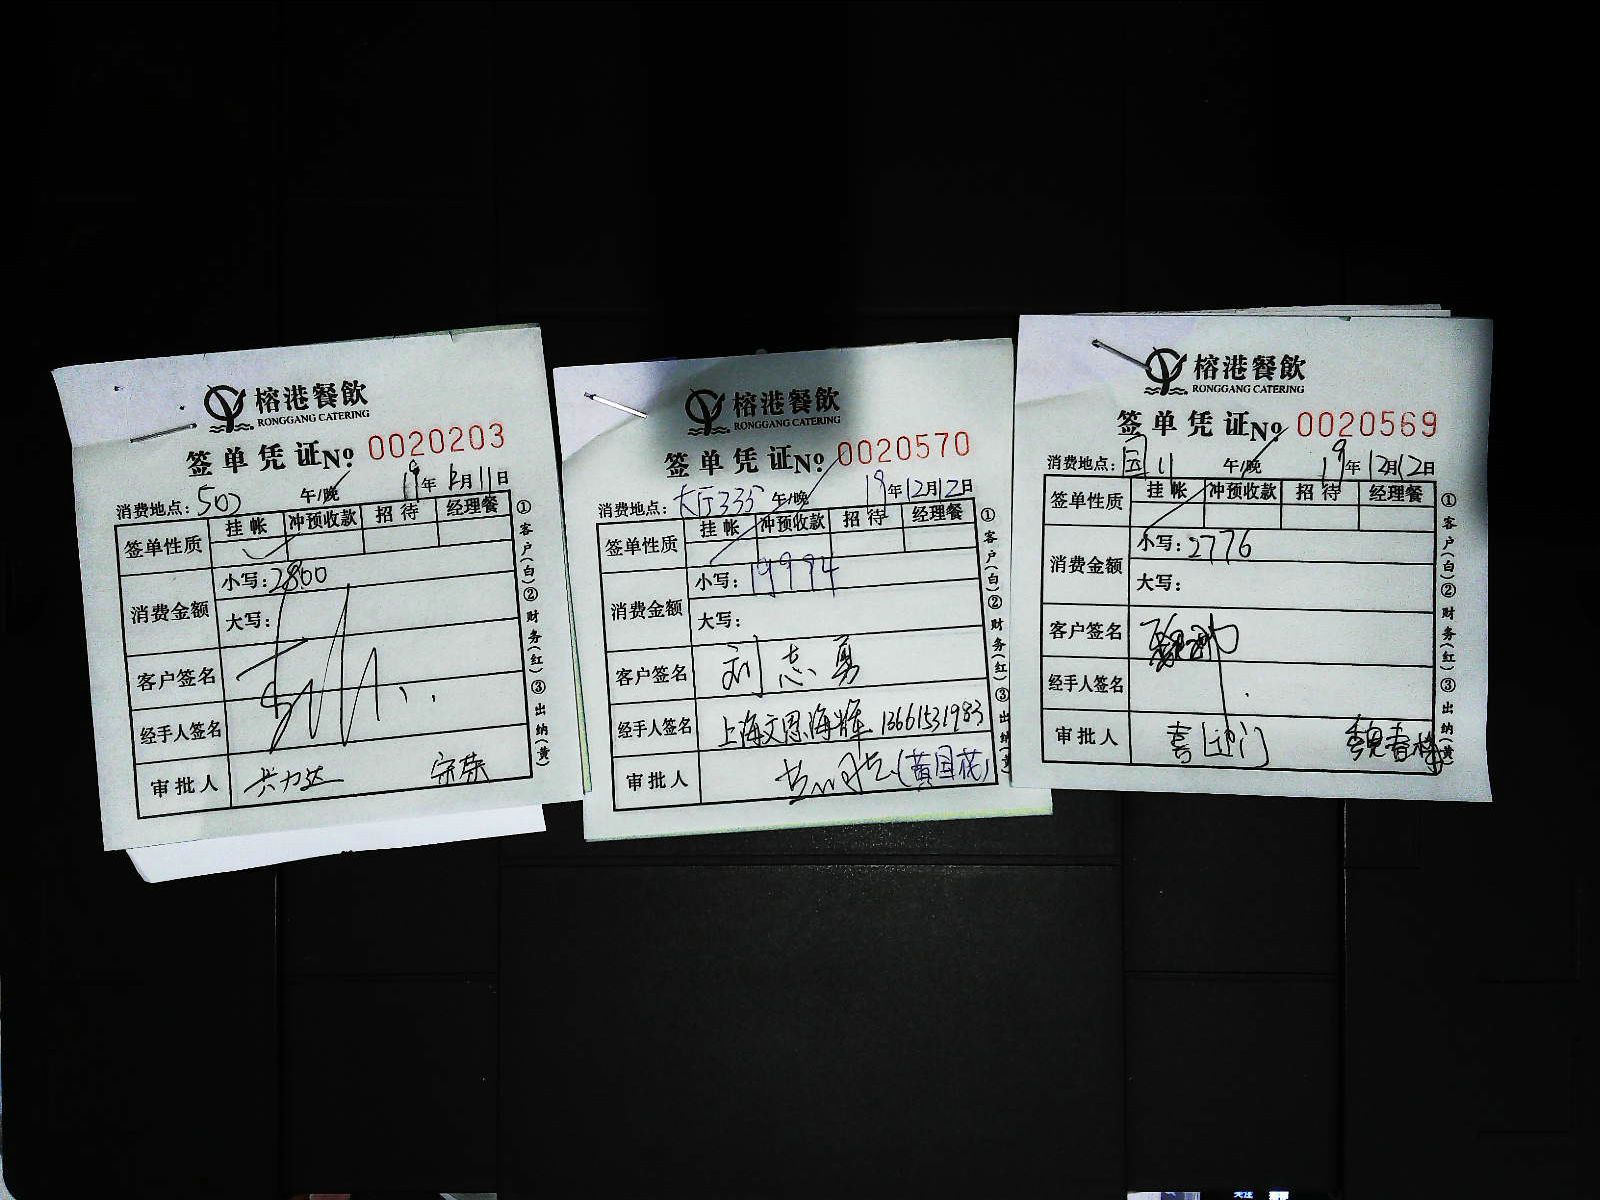 榕港餐飲
RONGGANG CATERING
签单凭证№ 0020203
19年12月11日
消费地点：503 午/晚
签单性质 挂帐 冲预收款 招待 经理餐
消费金额 小写：2860
大写：
客户签名
经手人签名
审批人
①客户(白)②财务(红)③出纳(黄)
榕港餐飲
RONGGANG CATERING
签单凭证№ 0020570
19年12月12日
消费地点：大厅335 午/晚
签单性质 挂帐 冲预收款 招待 经理餐
消费金额 小写：19994
大写：
客户签名 刘志勇
经手人签名 上海文思海辉 13661531983
审批人 (黄国花)
①客户(白)②财务(红)③出纳(黄)
榕港餐飲
RONGGANG CATERING
签单凭证№ 0020569
消费地点： 午/晚 19年12月12日
签单性质 挂帐 冲预收款 招待 经理餐
消费金额 小写：2776
大写：
客户签名
经手人签名
审批人 魏春梅
①客户(白)②财务(红)③出纳(黄)